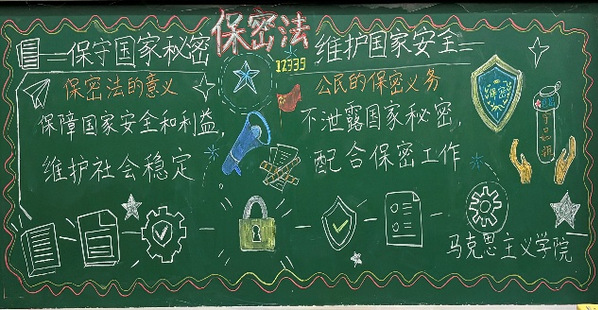 保守国家秘密
保密法
维护国家安全
12339
保密法的意义
公民的保密义务
保障国家安全和利益，
维护社会稳定
不泄露国家秘密，
配合保密工作
保密
举报箱
马克思主义学院